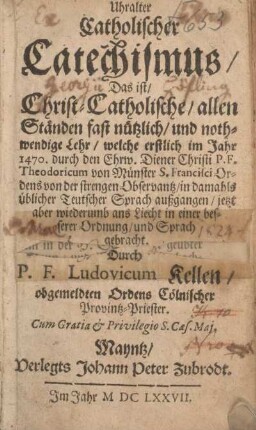 Uhralter
Catholischer
Catechismus /
Das ist /
Christ-Catholische / allen
Ständen fast nützlich / und noth-
wendige Lehr / welche erstlich im Jahr
1470. durch den Ehrw. Diener Christi P. F.
Theodoricum von Münster S. Francisci Or-
dens von der strengen Observantz / in damahls
üblicher Teutscher Sprach außgangen / jetzt
aber wiederumb ans Liecht in einer bes-
serer Ordnung / und Sprach
gebracht.
Durch
P. F. Ludovicum Kellen /
obgemeldten Ordens Cölnischer
Provintz-Priester.
Cum Gratia & Privilegio S. Cæs. Maj.
Mayntz /
Verlegts Johann Peter Zubrodt.
Im Jahr M DC LXXVII.